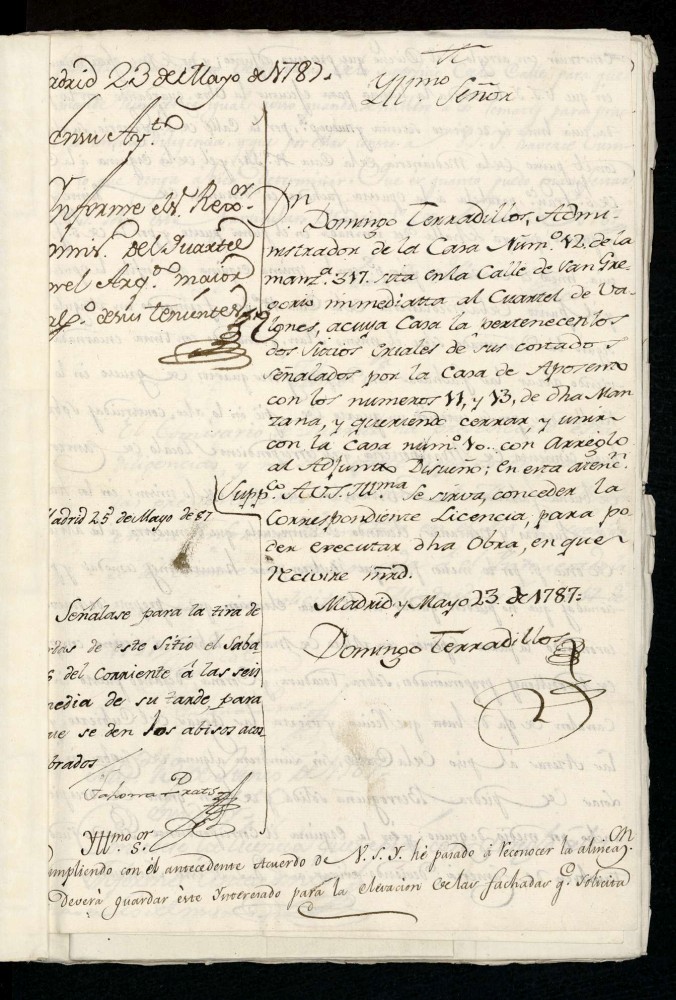 adrid 23 de Mayo de 1787.
en su Ay.to
nforme el S.r Rexor.
omis.o del Quartel
n el Arq.to maior
su Teniente
Yll.mo Señor
Dn. Domingo Terradillos, Admi-
nistrador de la Casa Núm.o 12. de la
manz.a 317. sita en la Calle de San Gre-
gorio immediatta al Cuartel de Va-
lones, a cuya Casa la pertenecen los
dos Sitios Eriales de sus costados
señalados por la Casa de Aposento
con los numeros 11, y 13, de dha Man-
zana, y queriendo cerrar, y unir
con la Casa num.o 10.. con Arreglo
al Adjunto Diseño; en esta atenc.n
Supp.co A V.S. Yll.ma Se sirva, conceder la
Correspondiente Licencia, para po-
der executar dha Obra, en que
Recivire mrd.
Madrid y Mayo 23 de 1787:
Domingo Terradillos
Madrid 25 de Mayo de 87
Señalase para la tira de
rdas de este Sitio el Saba-
del corriente á las seis
media de su tarde, para
ue se den los abisos acos
brados
Yll.mo S.or
umpliendo con él antecedente Acuerdo de V.S.Y. hé pasado á reconocer la alineaz.on
Deverá guardar éste Ynteresado para la elevacion de las fachadas q.e solicita